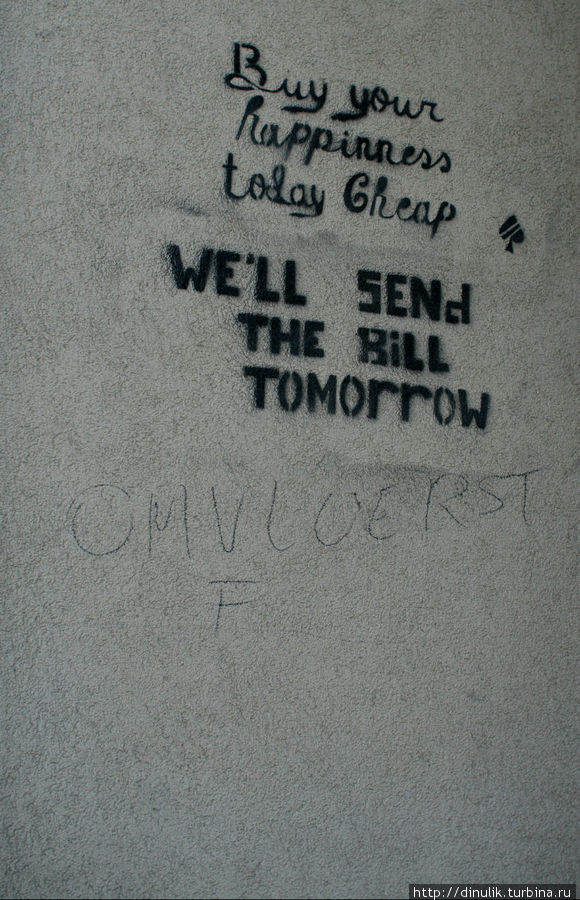 Buy your
happinness
today Cheap
WE'LL SENd
THE BiLL
TOMOrrOW
OMVLOERST
F
http://dinulik.turbina.ru